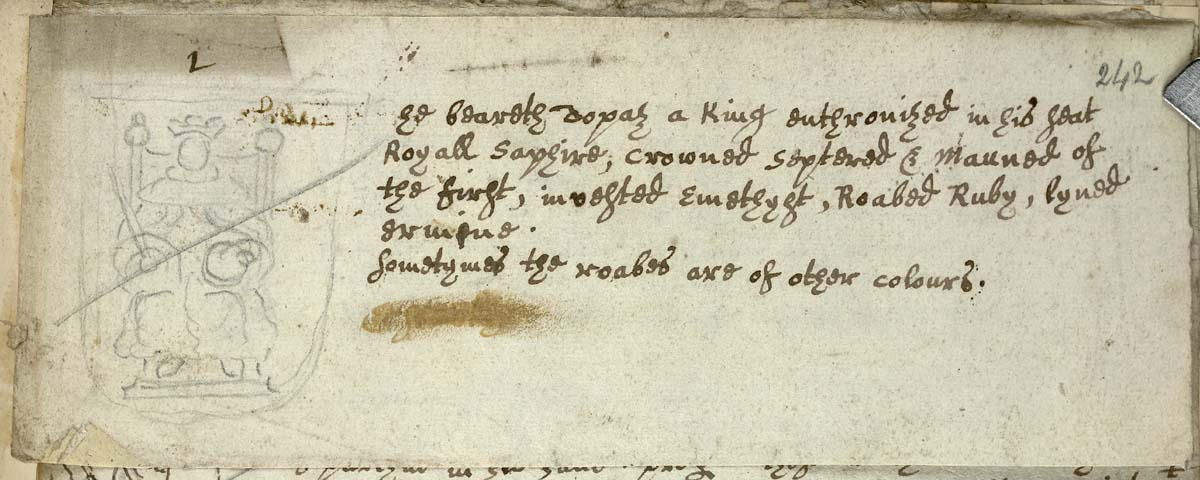 1
242
he beareth Topaz a King enthronized in his seat
Royall Saphire, crowned septered & Mauned of
the first, invested Emethyst, Roabed Ruby, lyned
ermine.
sometymes the roabes are of other colours.